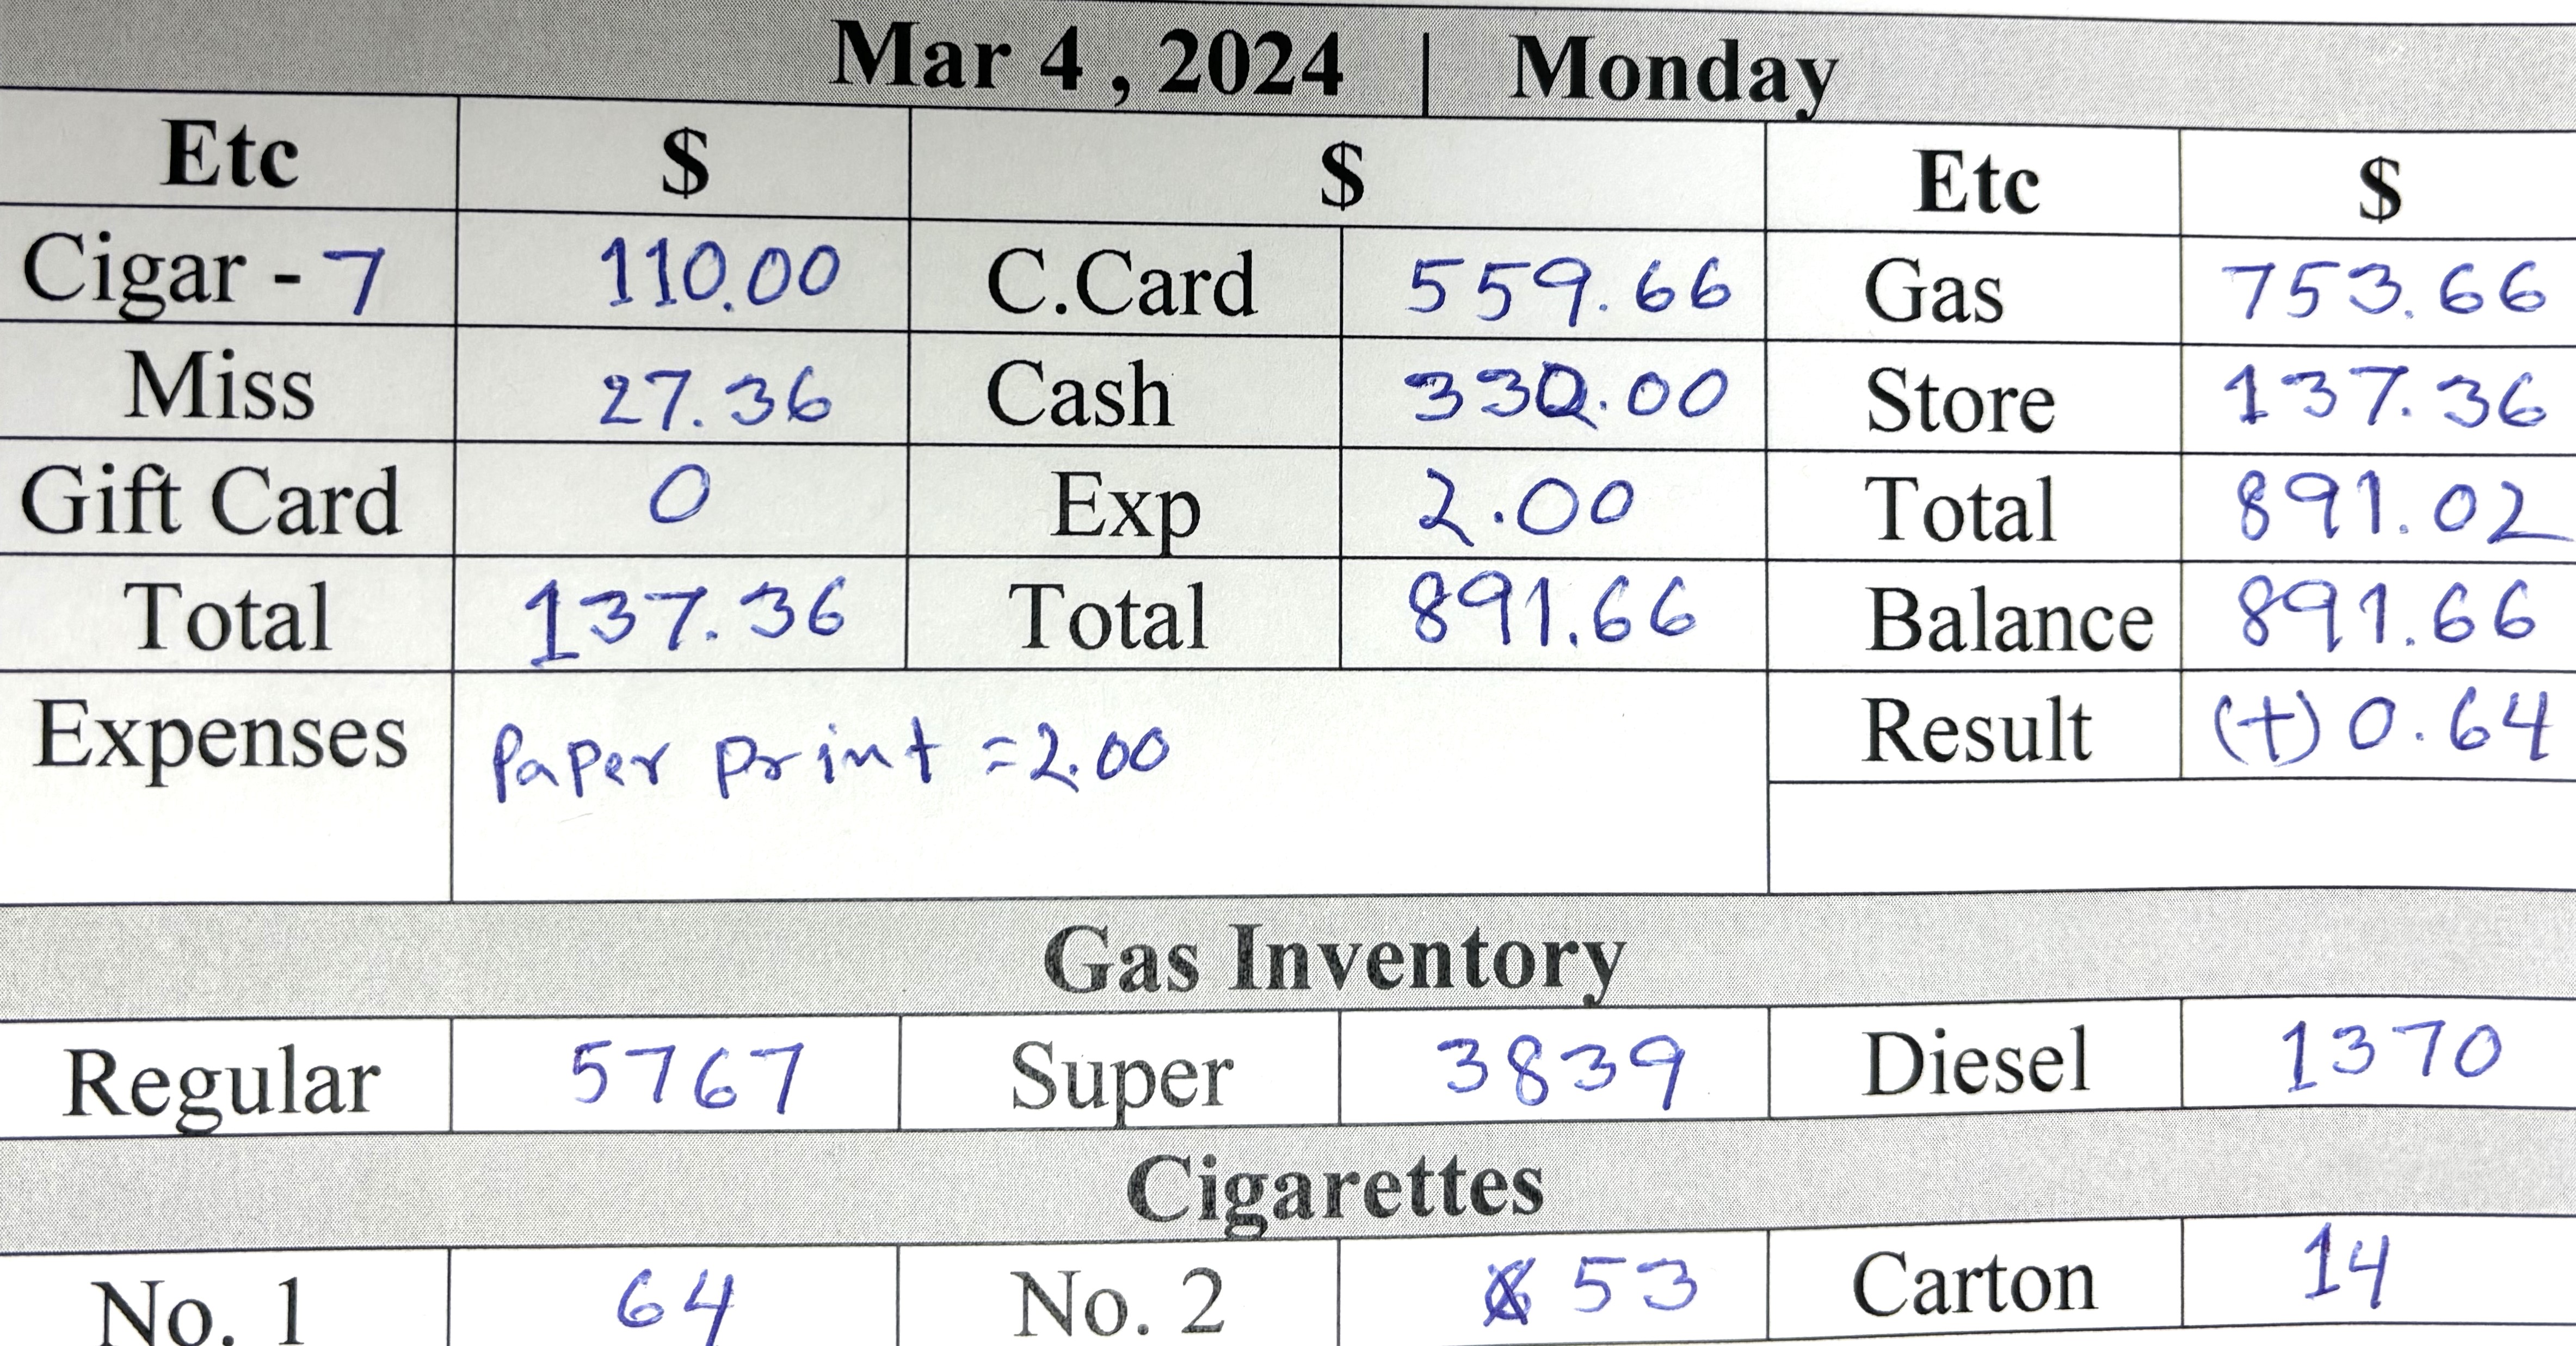 Mar 4 , 2024 | Monday
Etc $ $ Etc $
Cigar - 7 110.00 C.Card 559.66 Gas 753.66
Miss 27.36 Cash 330.00 Store 137.36
Gift Card 0 Exp 2.00 Total 891.02
Total 137.36 Total 891.66 Balance 891.66
Expenses Paper print =2.00 Result (+) 0.64
Gas Inventory
Regular 5767 Super 3839 Diesel 1370
Cigarettes
No. 1 64 No. 2 53 Carton 14